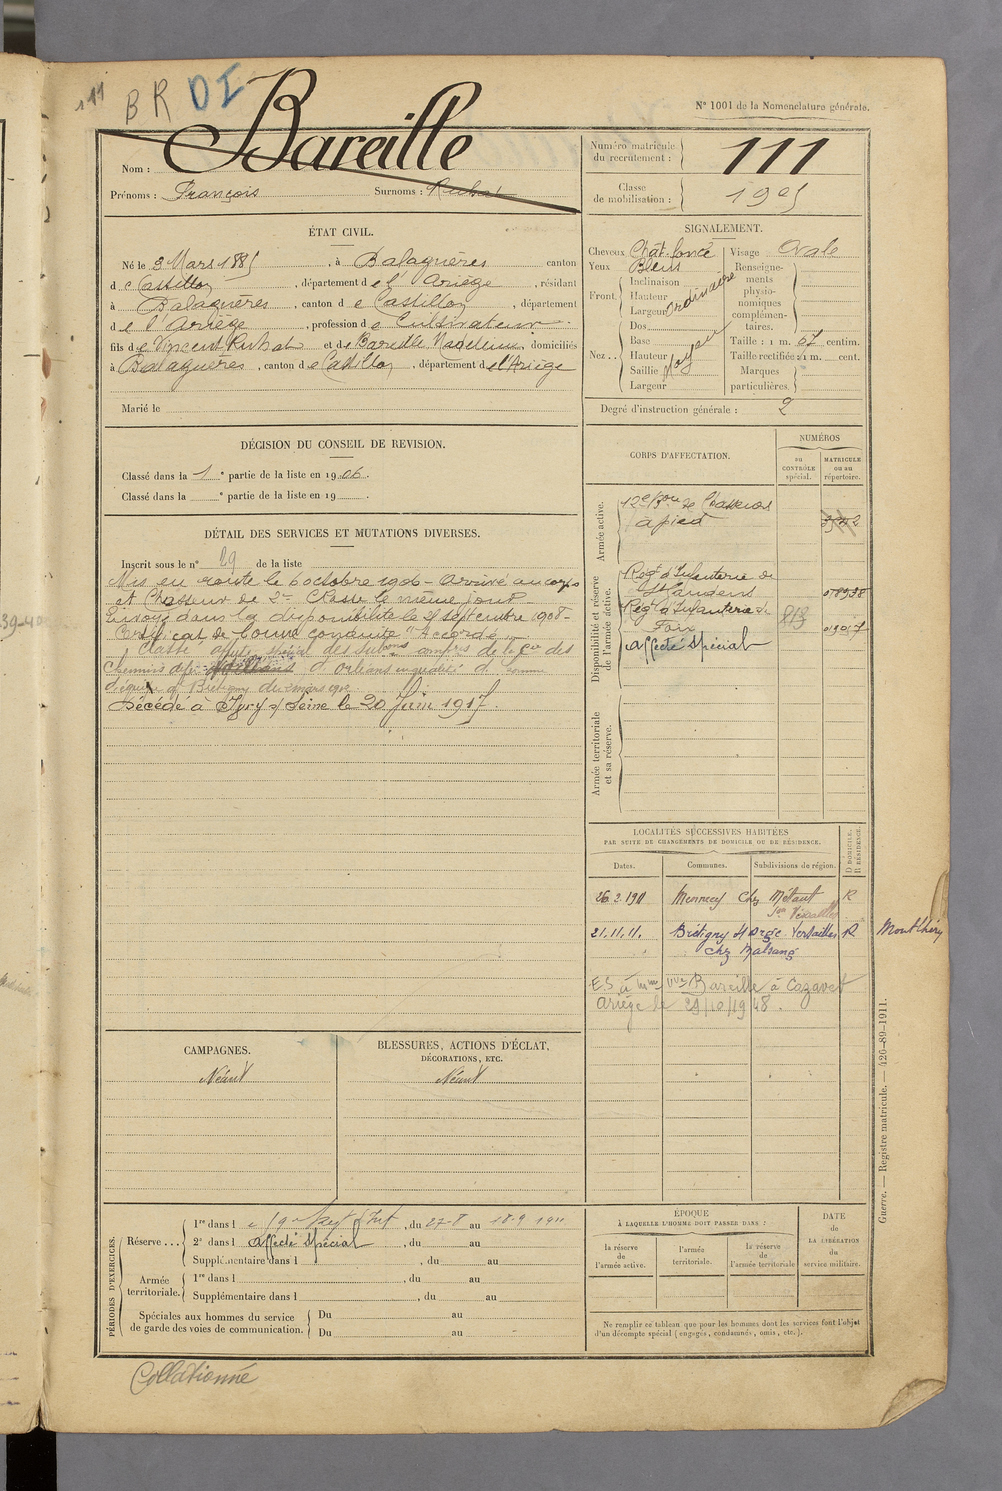 111
BR DI
N° 1001 de la Nomenclature générale.
Nom : Bareille
Prénoms : François Surnoms : Ruhat
Numéro matricule du recrutement : 111
Classe de mobilisation : 1905
ÉTAT CIVIL.
Né le 3 Mars 1885, à Balaguères canton
de Castillon, département de l'Ariège, résidant
à Balaguères, canton de Castillon, département
de l'Ariège, profession de Cultivateur
fils de Vincent Ruhat et de Bareille Madeleine, domiciliés
à Balaguères, canton de Castillon, département de l'Ariège
Marié le
SIGNALEMENT.
Cheveux Chât. foncé
Yeux Bleus
Front. Inclinaison Hauteur Largeur ordinaire
Dos
Nez Base Hauteur Saillie Largeur Moyen
Visage Ovale
Renseignements physionomiques complémentaires.
Taille : 1 m. 67 centim.
Taille rectifiée : 1 m. cent.
Marques particulières.
Degré d'instruction générale : 2
DÉCISION DU CONSEIL DE REVISION.
Classé dans la 1e partie de la liste en 1906.
Classé dans la e partie de la liste en 19 .
DÉTAIL DES SERVICES ET MUTATIONS DIVERSES.
Inscrit sous le n° 29 de la liste
Mis en route le 6 octobre 1906 - Arrivé au corps
et Chasseur de 2e Classe le même jour
Envoyé dans la disponibilité le 25 septembre 1908 -
Certificat de bonne conduite "Accordé"
Classé affecté spécial des Subons de la Cie des
Chemins de fer d'Orléans en qualité d'homme
d'équipe à Brétigny du mars
Décédé à Ivry s/ Seine le 20 Juin 1917.
CORPS D'AFFECTATION.
NUMÉROS
DU CONTRÔLE spécial.
MATRICULE ou au répertoire.
Armée active.
12e Bon de Chasseurs
à pied
Disponibilité et réserve de l'armée active.
Regt d'Infanterie de
St Gaudens 07898
Regt d'Infanterie de
Foix 813 01907
Affecté Spécial
Armée territoriale et sa réserve.
LOCALITÉS SUCCESSIVES HABITÉES
PAR SUITE DE CHANGEMENTS DE DOMICILE OU DE RÉSIDENCE.
Dates. Communes. Subdivisions de région. D. DOMICILE. R. RÉSIDENCE.
26.2.1911 Mennecy Chez Métaut R
Versailles
21.11.11. Brétigny s/ Orge Versailles R. Montlhéry
chez Malsang
E.S. à Mme Vve Bareille à Cazavet
Ariège le 29/10/1948.
CAMPAGNES.
Néant
BLESSURES, ACTIONS D'ÉCLAT, DÉCORATIONS, ETC.
Néant
PÉRIODES D'EXERCICES.
Réserve...
1re dans le Regt d'Inf, du 27-8 au 18-9 1911
2e dans l Affecté Spécial, du au
Supplémentaire dans l , du au
Armée territoriale.
1re dans l , du au
Supplémentaire dans l , du au
Spéciales aux hommes du service de garde des voies de communication.
Du au
Du au
ÉPOQUE
À LAQUELLE L'HOMME DOIT PASSER DANS :
la réserve de l'armée active.
l'armée territoriale.
la réserve de l'armée territoriale
DATE de LA LIBÉRATION du service militaire.
Ne remplir ce tableau que pour les hommes dont les services font l'objet
d'un décompte spécial (engagés, condamnés, omis, etc.).
Guerre. — Registre matricule. — 426-89-1911.
Collationné